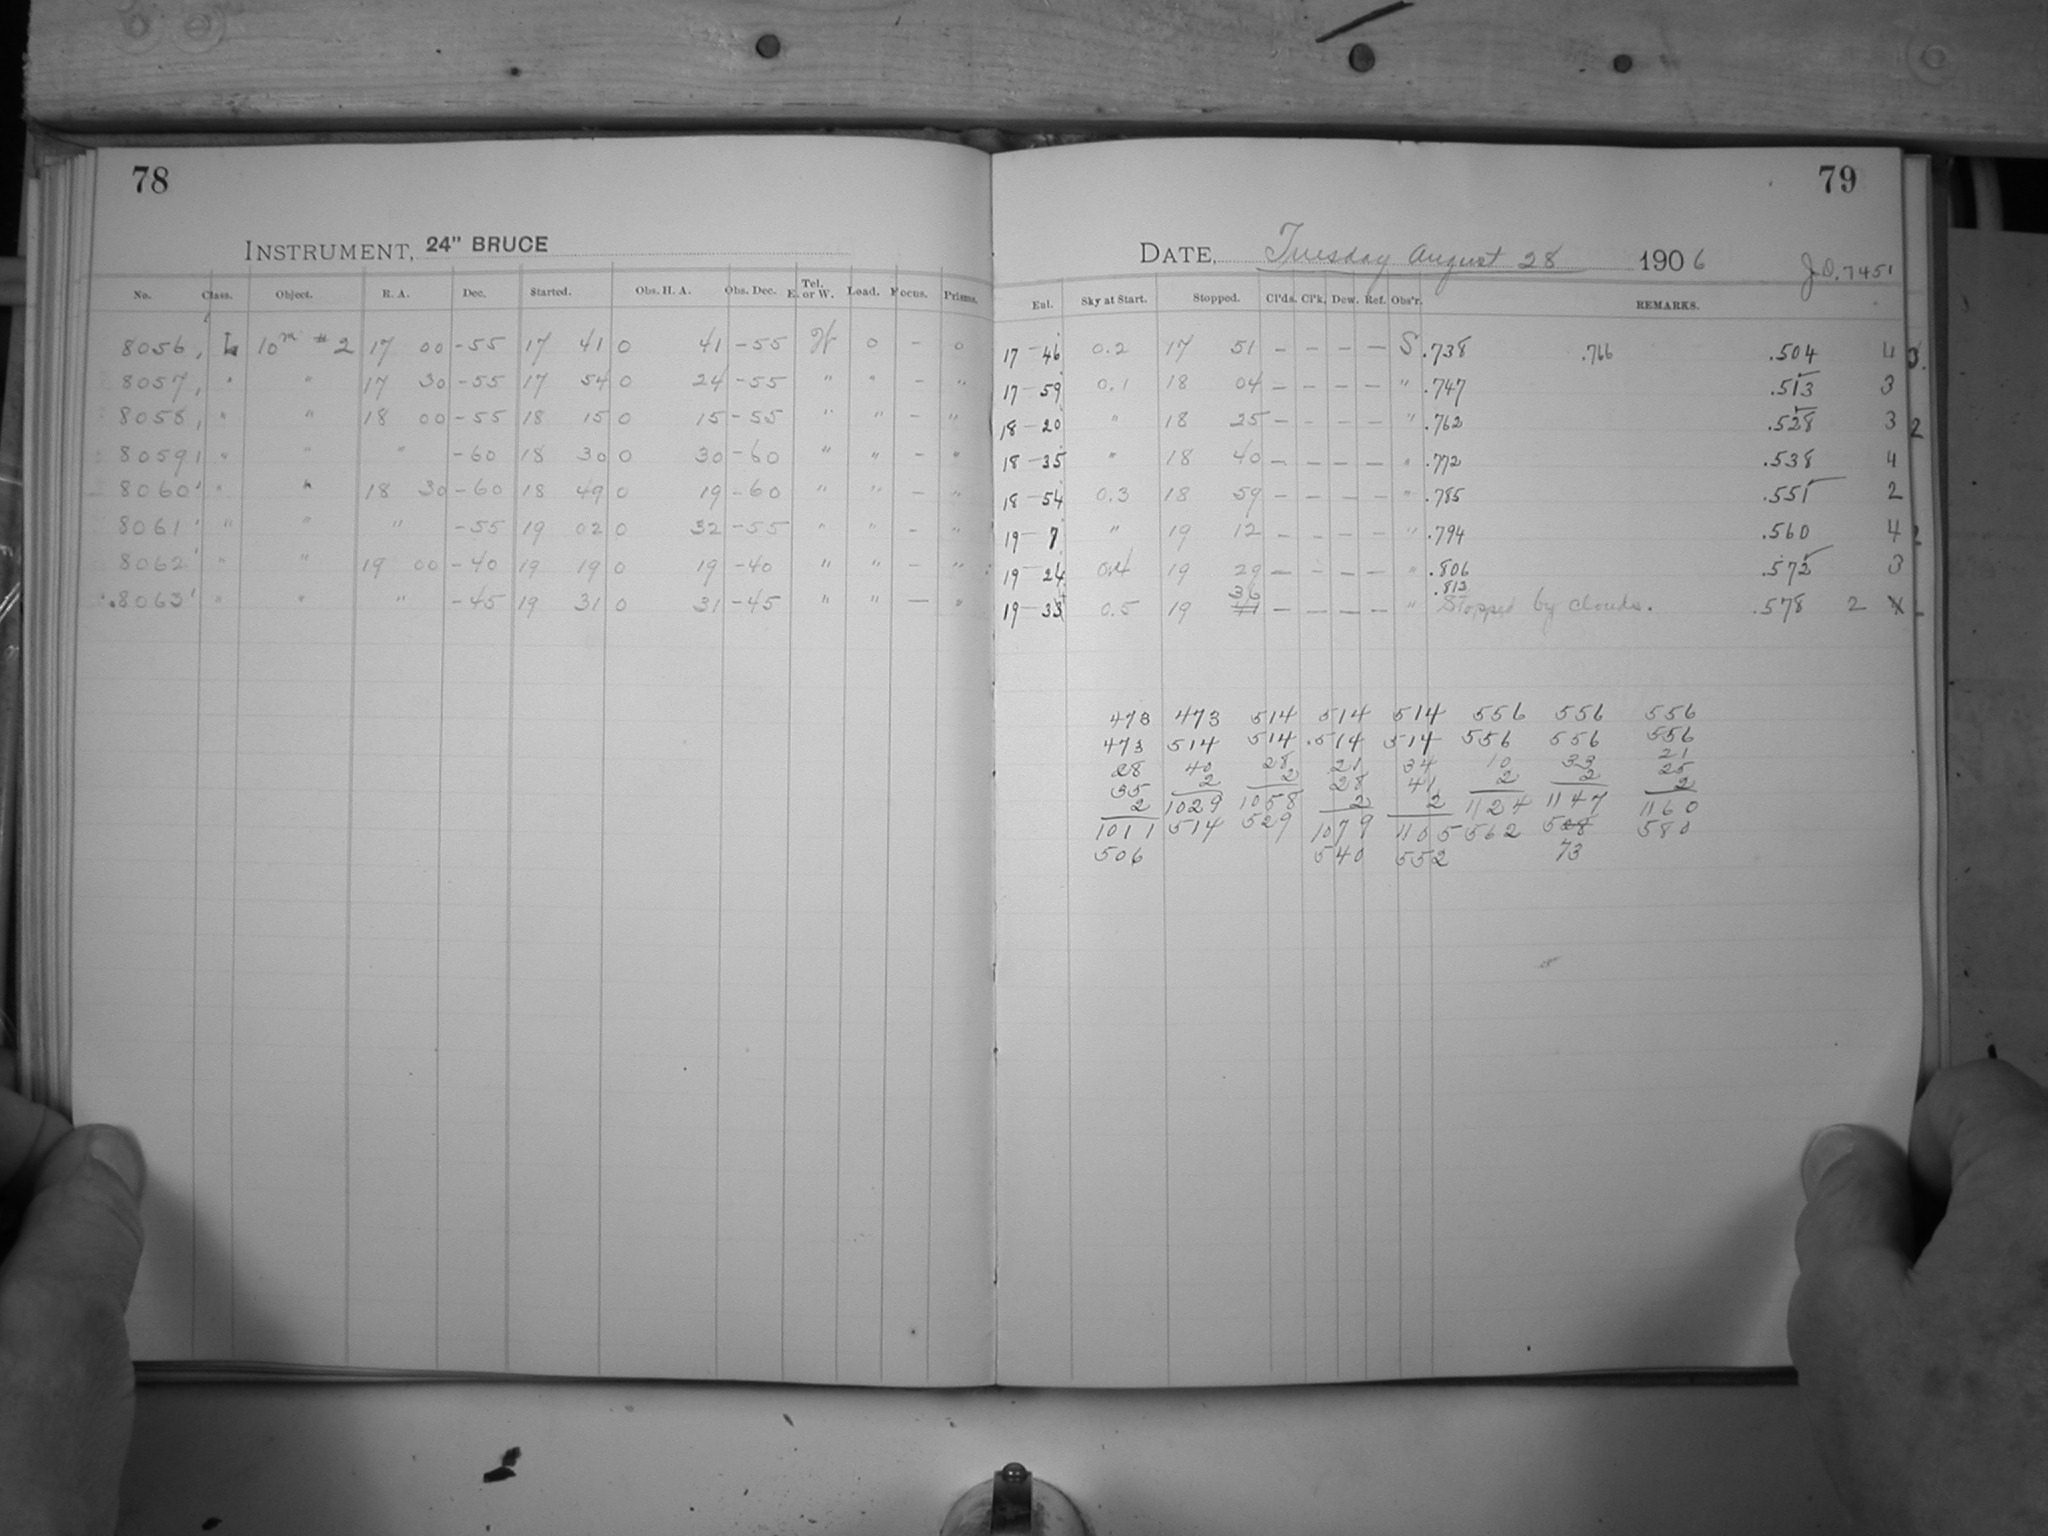 78
INSTRUMENT, 24" BRUCE
No. Class. Object. R. A. Dec. Started. Obs. H. A. Obs. Dec. Tel. E. or W. Load. Focus. Prisms.
8056, L 10m #2 17 00 -55 17 41 0 41 -55 W 0 - 0
8057, " " 17 30 -55 17 54 0 24 -55 " " - "
8058, " " 18 00 -55 18 15 0 15 -55 " " - "
8059, " " " -60 18 30 0 30 -60 " " - "
8060' " " 18 30 -60 18 49 0 19 -60 " " - "
8061' " " " -55 19 02 0 32 -55 " " - "
8062' " " 19 00 -40 19 19 0 19 -40 " " - "
8063' " " " -45 19 31 0 31 -45 " " - "
79
DATE, Tuesday August 28 1906 J.D. 7451
Eul. Sky at Start. Stopped. Cl'ds. Cl'k. Dew. Ref. Obs'r. REMARKS.
17-46 0.2 17 51 - - - - S .738 .766 .504 4
17-59 0.1 18 04 - - - - " .747 .513 3
18-20 " 18 25 - - - - " .762 .528 3
18-35 " 18 40 - - - - " .772 .538 4
18-54 0.3 18 59 - - - - " .785 .551 2
19-7 " 19 12 - - - - " .794 .560 4
19-24 0.4 19 29 - - - - " .806 .572 3
36 .813
19-33 0.5 19 41 - - - - " Stopped by clouds. .578 2
473 473 514 514 514 556 556 556
473 514 514 .514 514 556 556 556
28 40 28 21 34 10 33 21
35 2 2 28 41 2 2 25
2 1029 1058 2 2 1124 1147 2
1011 514 529 1079 1105 562 508 1160
506 540 552 73 580